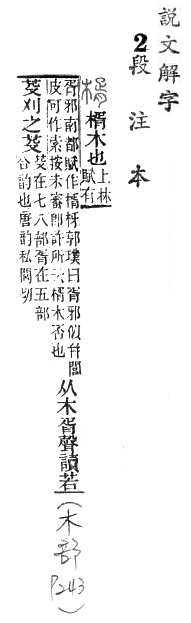 説文解字
2段注本
楈 楈木也上林
賦有
胥邪南都賦作楈枒郭璞曰胥邪似幷閭
皮可作索按未審卽許所云楈木否也
从木胥聲讀若
芟刈之芟
芟在七八部胥在五部
合韵也唐韵私閭切
(木部P243)